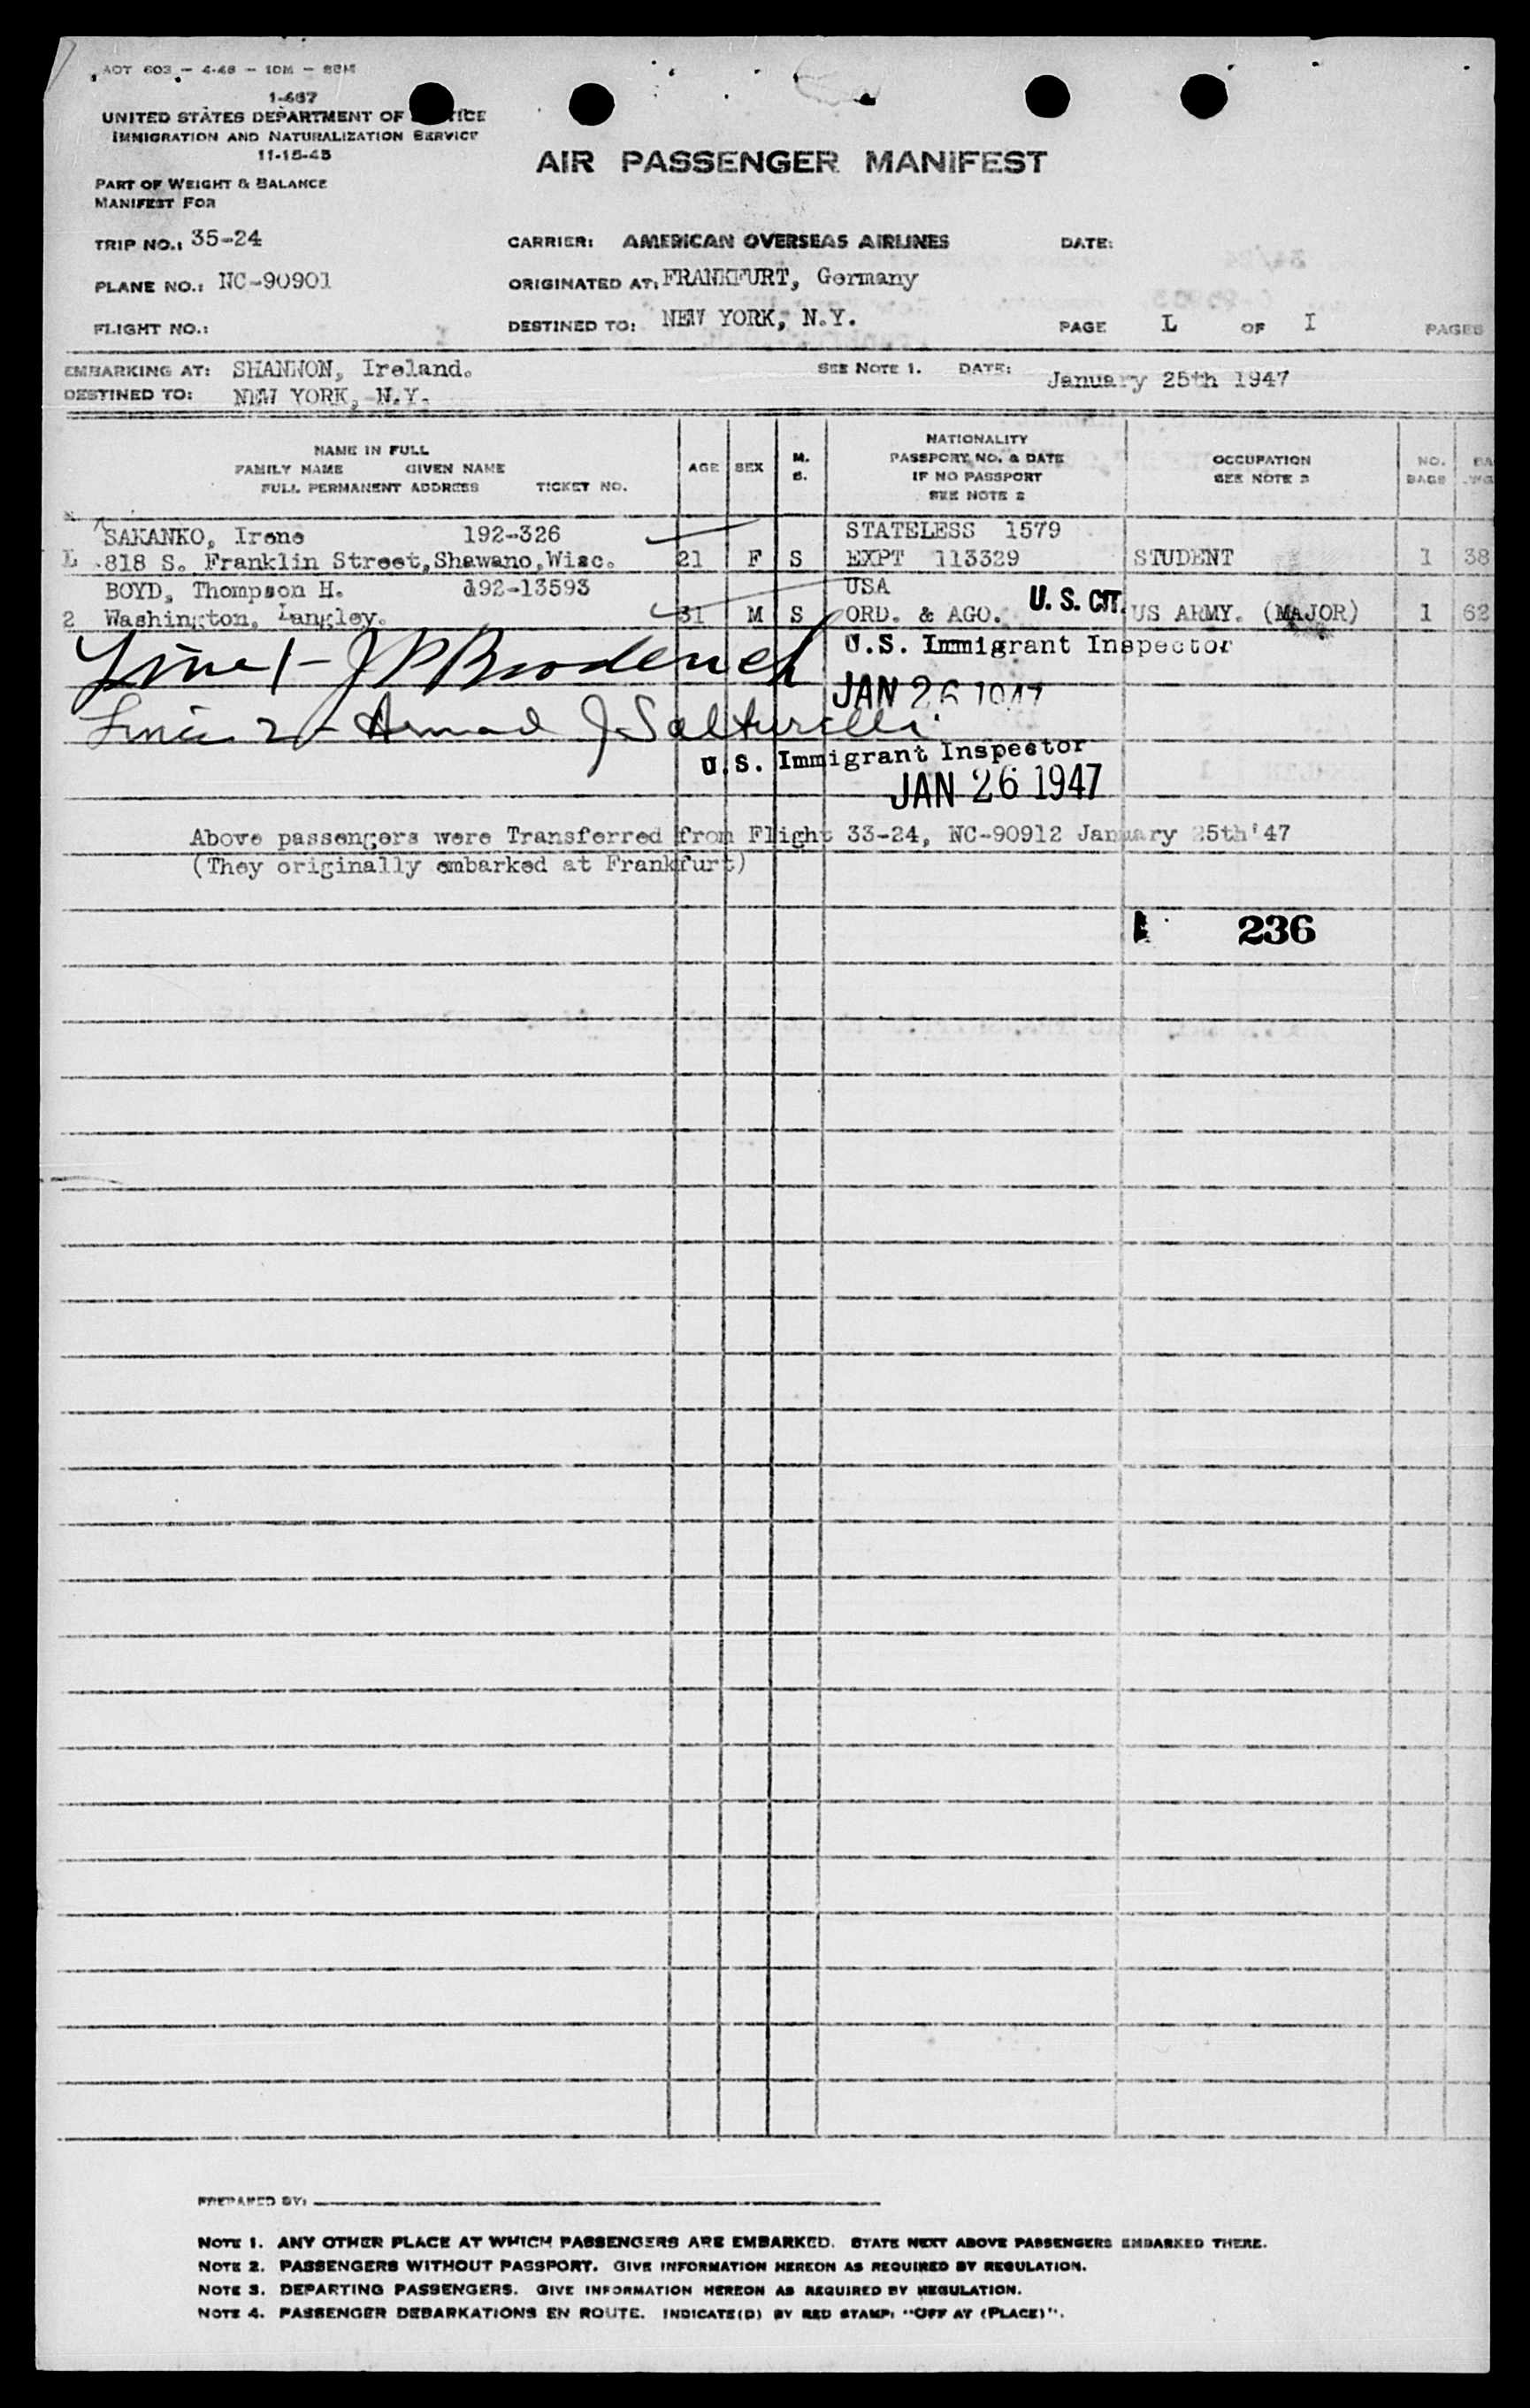 AOT 603 - 4-46 - 10M - SBM
1-467
UNITED STATES DEPARTMENT OF
IMMIGRATION AND NATURALIZATION SERVICE
11-15-45
AIR PASSENGER MANIFEST
PART OF WEIGHT & BALANCE
MANIFEST FOR
TRIP NO.: 35-24 CARRIER: AMERICAN OVERSEAS AIRLINES DATE:
PLANE NO.: NC-90901 ORIGINATED AT: FRANKFURT, Germany
FLIGHT NO.: DESTINED TO: NEW YORK, N.Y. PAGE L OF I PAGES
EMBARKING AT: SHANNON, Ireland. SEE NOTE 1. DATE: January 25th 1947
DESTINED TO: NEW YORK, N.Y.
NAME IN FULL
FAMILY NAME GIVEN NAME
FULL PERMANENT ADDRESS TICKET NO.
AGE SEX M. S.
NATIONALITY
PASSPORT NO. & DATE
IF NO PASSPORT
SEE NOTE 2
OCCUPATION
SEE NOTE 3
NO.
BAGS
SAKANKO, Irene 192-326 STATELESS 1579
L 818 S. Franklin Street, Shawano, Wisc. 21 F S EXPT 113329 STUDENT 1 38
BOYD, Thompson H. 192-13593 USA
2 Washington, Langley. 31 M S ORD. & AGO. U.S. CIT. US ARMY. (MAJOR) 1 62
Line 1 - J P Broderick U.S. Immigrant Inspector
JAN 26 1947
Line 2 - Armad J. Salturelli
U.S. Immigrant Inspector
JAN 26 1947
Above passengers were Transferred from Flight 33-24, NC-90912 January 25th '47
(They originally embarked at Frankfurt)
236
PREPARED BY:
NOTE 1. ANY OTHER PLACE AT WHICH PASSENGERS ARE EMBARKED. STATE NEXT ABOVE PASSENGERS EMBARKED THERE.
NOTE 2. PASSENGERS WITHOUT PASSPORT. GIVE INFORMATION HEREON AS REQUIRED BY REGULATION.
NOTE 3. DEPARTING PASSENGERS. GIVE INFORMATION HEREON AS REQUIRED BY REGULATION.
NOTE 4. PASSENGER DEBARKATIONS EN ROUTE. INDICATE(D) BY RED STAMP: "OFF AT (PLACE)".